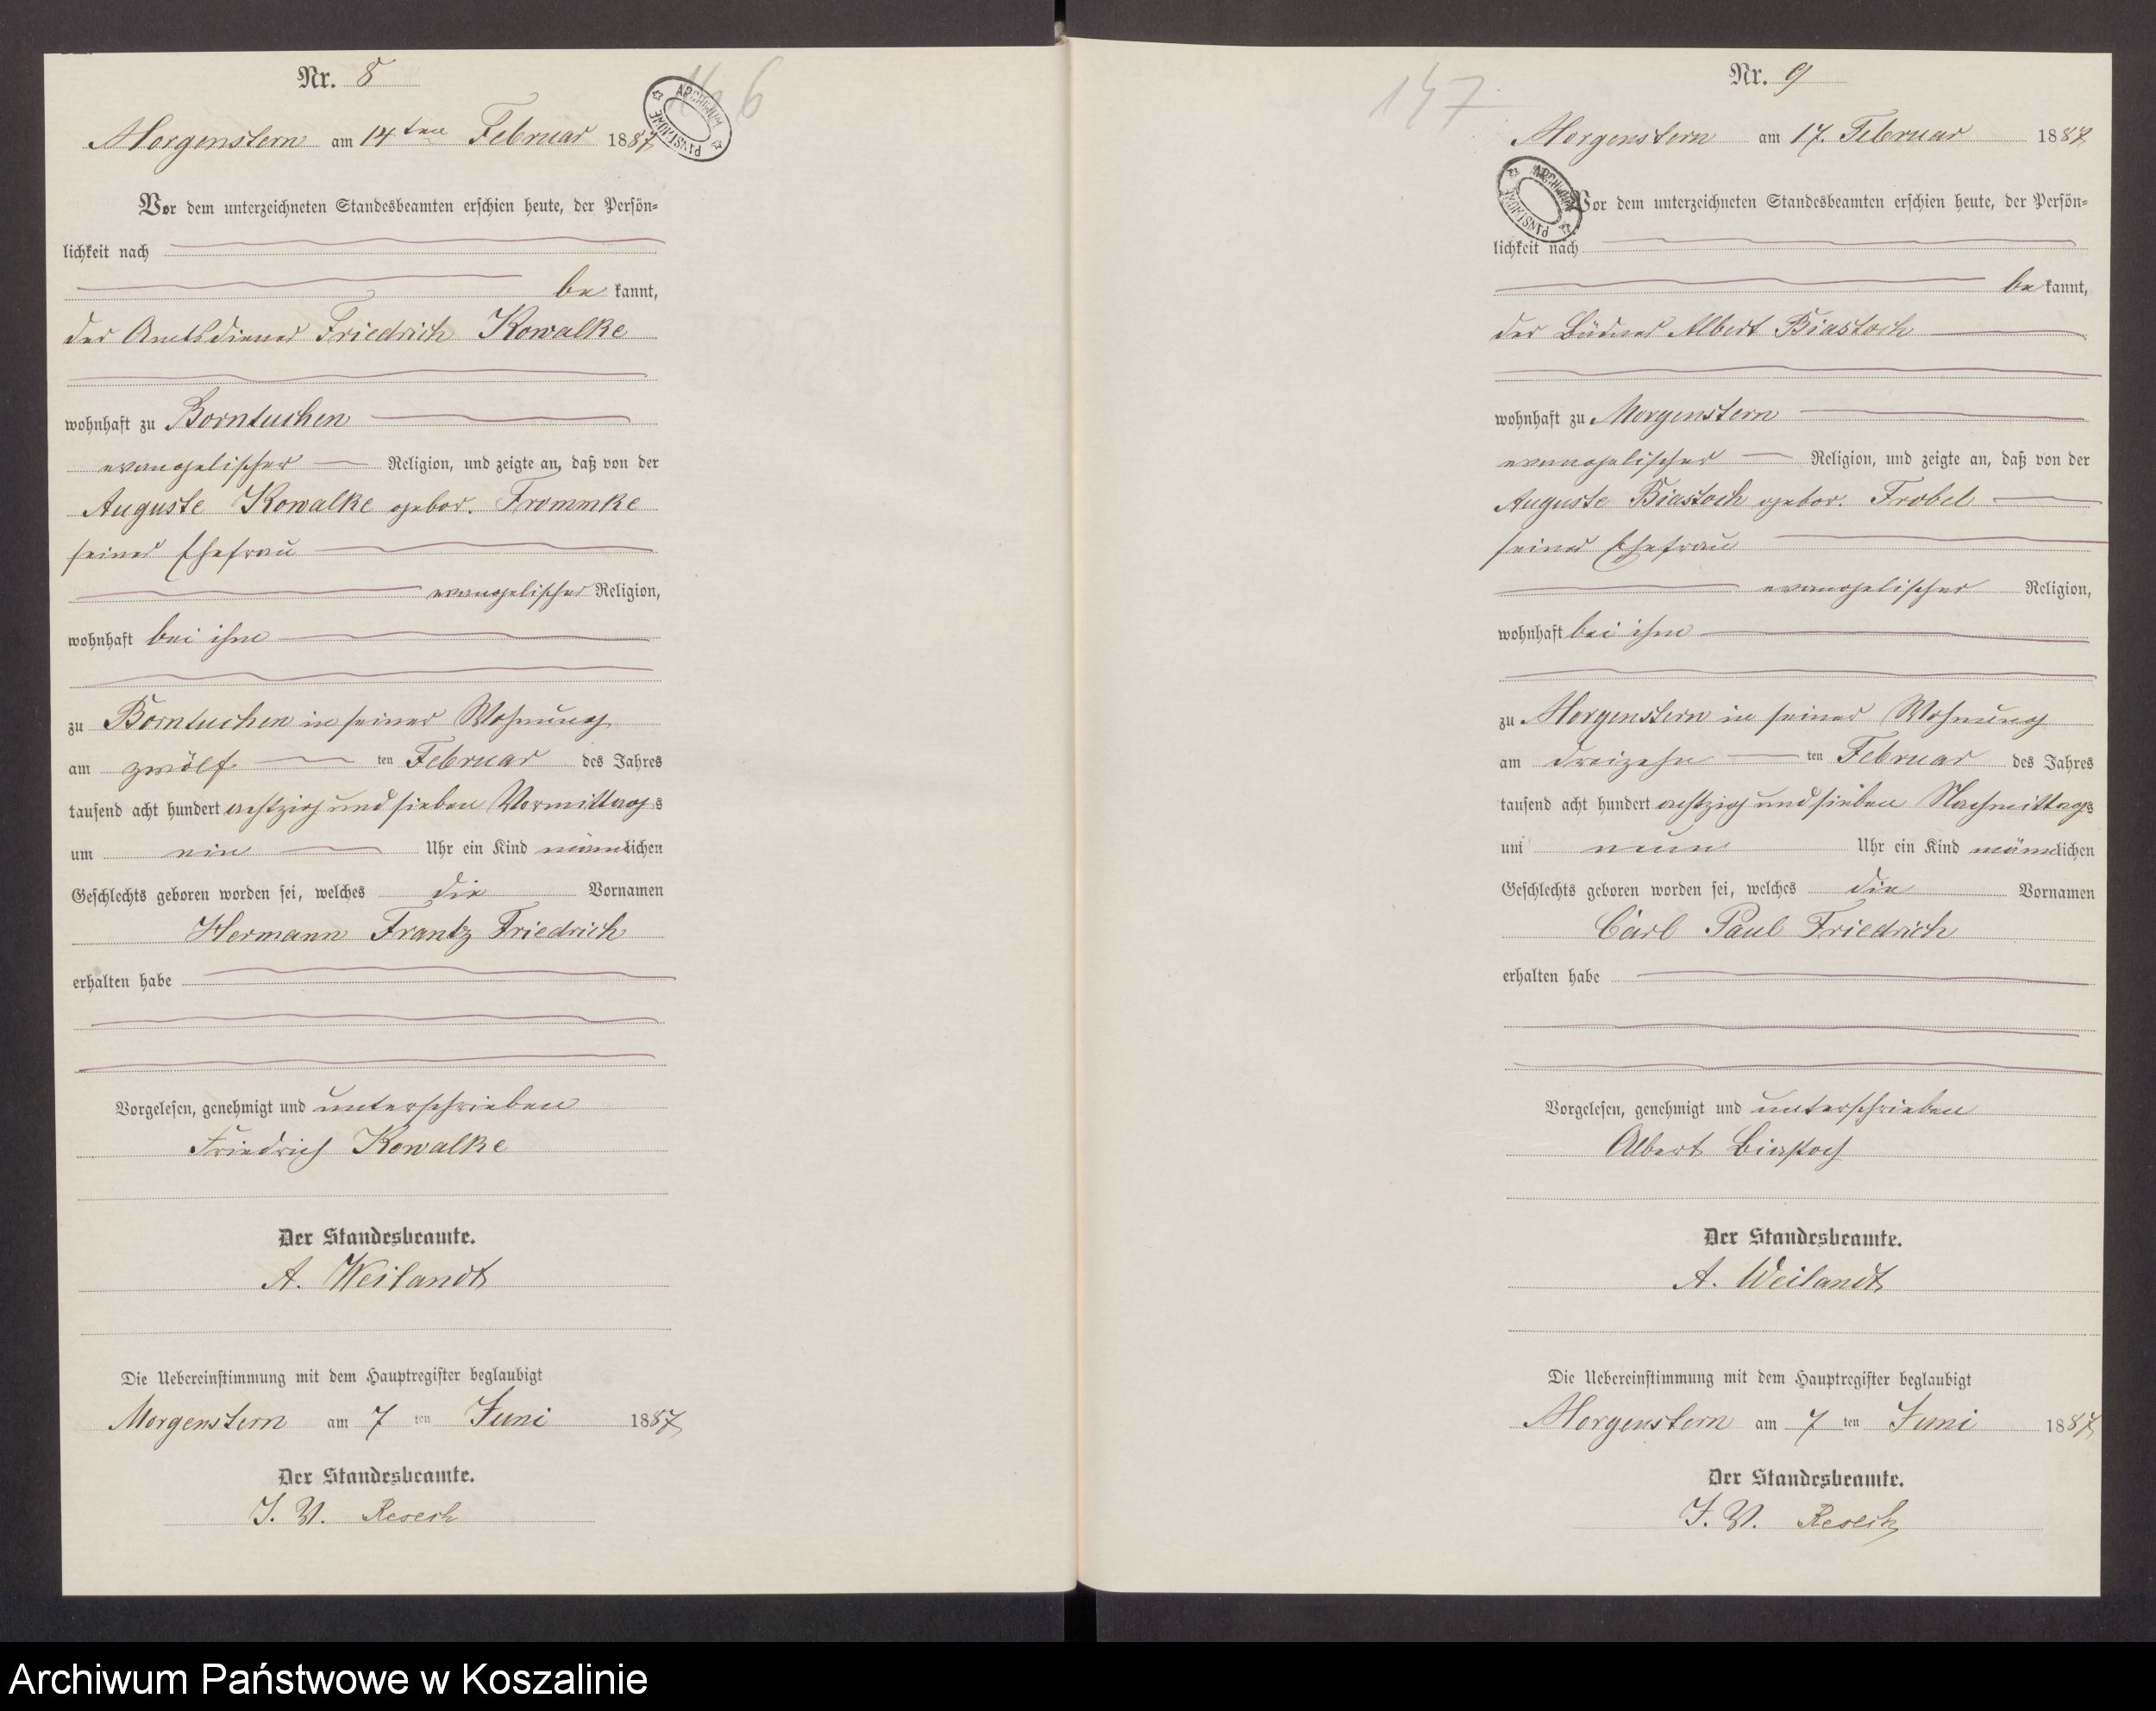 Nr. 8
146
Morgenstern am 14ten Februar 1887
ARCHIWUM PAŃSTWOWE
Vor dem unterzeichneten Standesbeamten erschien heute, der Persön-
lichkeit nach
be kannt,
der Amtsdiener Friedrich Kowalke
wohnhaft zu Borntuchen
evangelischer Religion, und zeigte an, daß von der
Auguste Kowalke gebor. Frommke
seiner Ehefrau
evangelischer Religion,
wohnhaft bei ihm
zu Borntuchen in seiner Wohnung
am zwölf ten Februar des Jahres
tausend acht hundert achtzig und sieben Vormittags
um ein Uhr ein Kind männlichen
Geschlechts geboren worden sei, welches die Vornamen
Hermann Frantz Friedrich
erhalten habe
Vorgelesen, genehmigt und unterschrieben
Friedrich Kowalke
Der Standesbeamte.
A. Weilandt
Die Uebereinstimmung mit dem Hauptregister beglaubigt
Morgenstern am 7 ten Juni 1887
Der Standesbeamte.
J. V. Resech
147
Nr. 9
Morgenstern am 17. Februar 1887
ARCHIWUM PAŃSTWOWE
Vor dem unterzeichneten Standesbeamten erschien heute, der Persön-
lichkeit nach
be kannt,
der Büdner Albert Biastoch
wohnhaft zu Morgenstern
evangelischer Religion, und zeigte an, daß von der
Auguste Biastoch gebor. Frobel
seiner Ehefrau
evangelischer Religion,
wohnhaft bei ihm
zu Morgenstern in seiner Wohnung
am dreizehn ten Februar des Jahres
tausend acht hundert achtzig und sieben Nachmittags
um neun Uhr ein Kind männlichen
Geschlechts geboren worden sei, welches die Vornamen
Carl Paul Friedrich
erhalten habe
Vorgelesen, genehmigt und unterschrieben
Albert Biastoch
Der Standesbeamte.
A. Weilandt
Die Uebereinstimmung mit dem Hauptregister beglaubigt
Morgenstern am 7 ten Juni 1887
Der Standesbeamte.
J. V. Resech
Archiwum Państwowe w Koszalinie